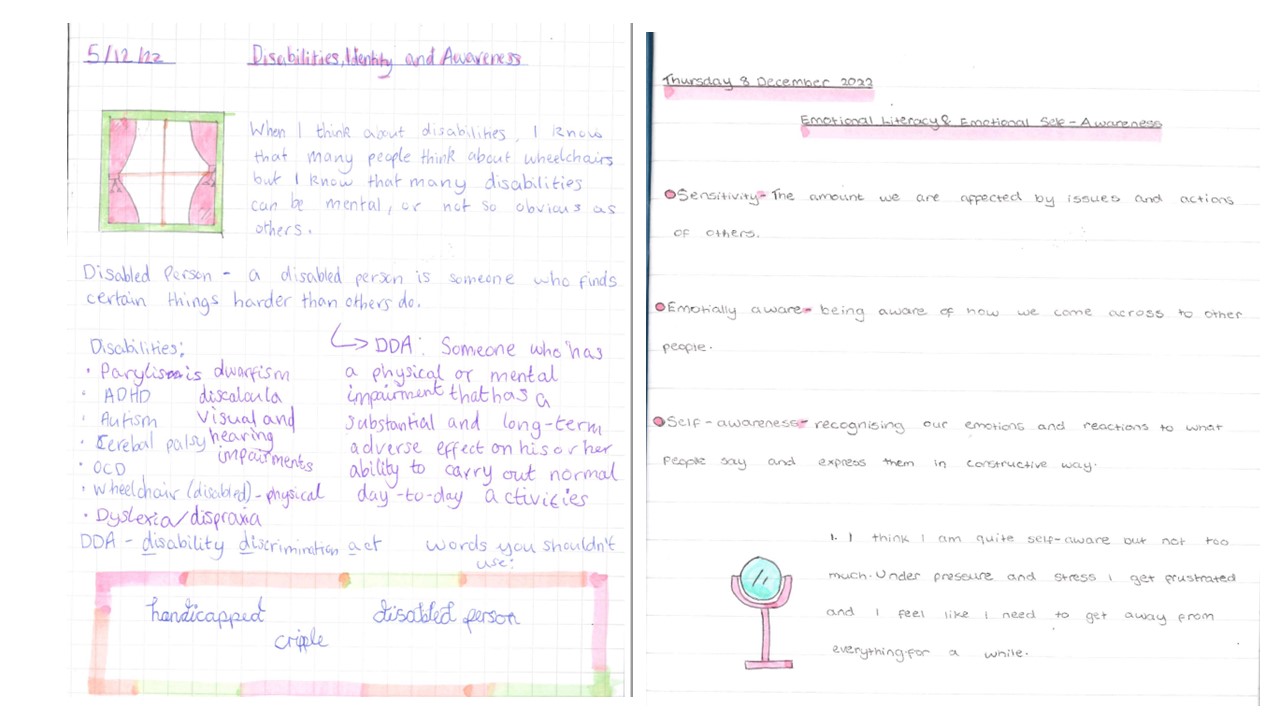 5/12/22 Disabilities, Identity and Awareness
When I think about disabilities, I know
that many people think about wheelchairs
but I know that many disabilities
can be mental, or not so obvious as
others.
Disabled Person - a disabled person is someone who finds
certain things harder than others do.
Disabilities:
• Parylismis dwarfism
• ADHD discalcula
• Autism visual and
• Cerebal palsy hearing
impairments
• OCD
• Wheelchair (disabled) - physical
• Dyslexia/dispraxia
↳ DDA: Someone who has
a physical or mental
impairment that has a
substantial and long-term
adverse effect on his or her
ability to carry out normal
day-to-day activities
DDA - disability discrimination act
words you shouldn't
use:
handicapped disabled person
cripple
Thursday 8 December 2022
Emotional Literacy & Emotional Self-Awareness
• Sensitivity - The amount we are affected by issues and actions
of others.
• Emotially aware - being aware of how we come across to other
people.
• Self-awareness - recognising our emotions and reactions to what
people say and express them in constructive way.
1. I think I am quite self-aware but not too
much. Under pressure and stress i get frustrated
and I feel like I need to get away from
everything for a while.